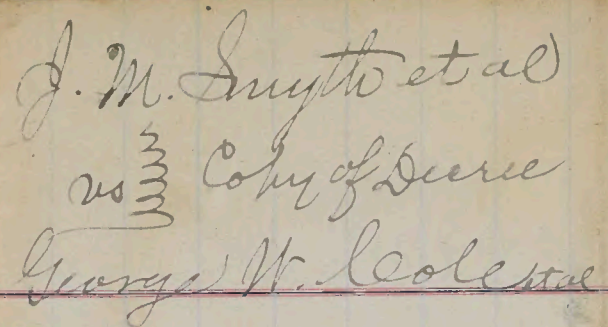 J. M. Smyth et al
vs Copy of Decree
George W. Cole et al